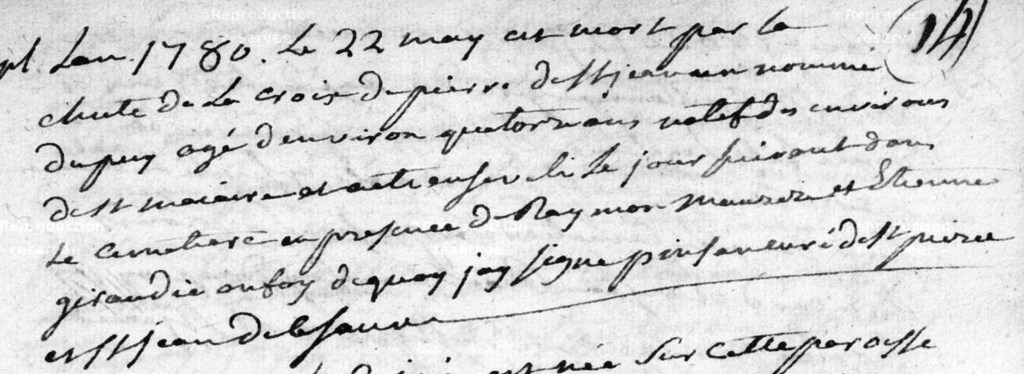 pl Lan 1780. Le 22 may est mort par la (14)
chute de La croix de pierre de St jean un nommé
dupuy agé denviron quatorze ans natif des environs
de St macaire et a eté enseveli Le jour suivant dans
Le cimetiere en presence de Raymon et Etienne
giraudie en foy de quoy jay signe pinsan curé de St pierre
et St jean de lasauve
est née Sur cette paroisse